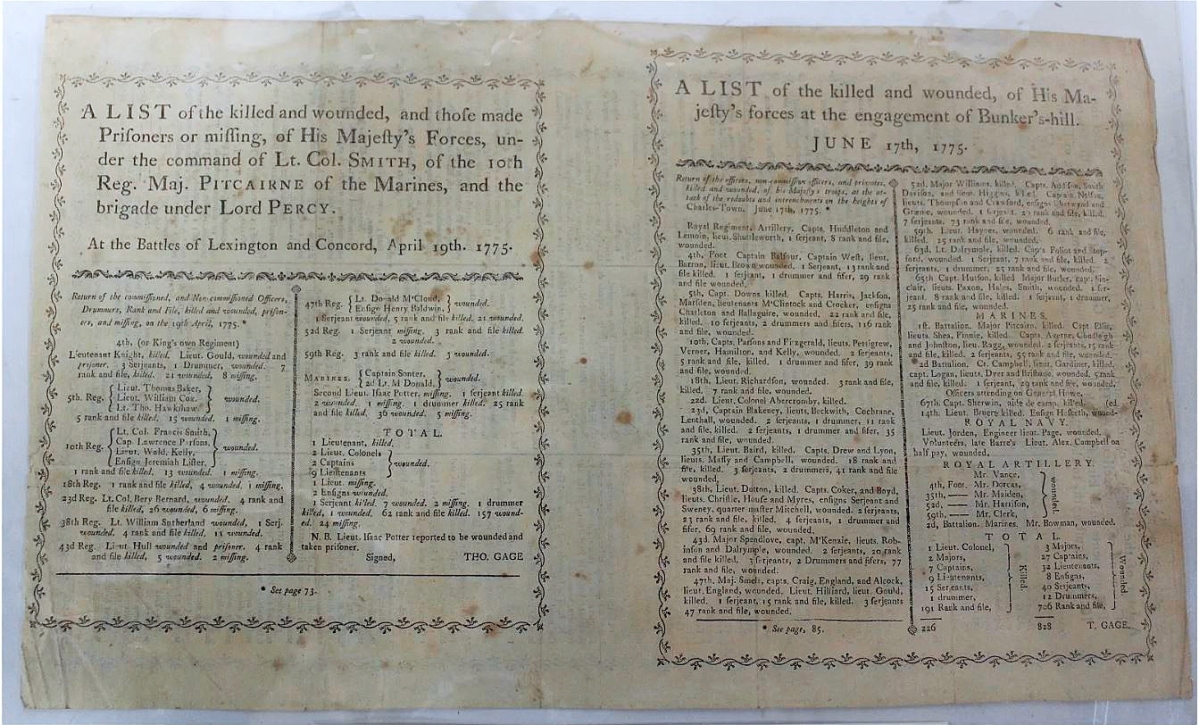 A LIST of the killed and wounded, and those made
Prisoners or missing, of His Majesty's Forces, un-
der the command of Lt. Col. SMITH, of the 10th
Reg. Maj. PITCAIRNE of the Marines, and the
brigade under Lord PERCY.
At the Battles of Lexington and Concord, April 19th. 1775.
Return of the commissioned, and Non-commissioned Officers,
Drummers, Rank and File, killed and wounded, prison-
ers, and missing, on the 19th April, 1775.*
4th, (or King's own Regiment)
Lieutenant Knight, killed. Lieut. Gould, wounded and
prisoner. 3 Serjeants, 1 Drummer, wounded. 7
rank and file, killed. 21 wounded, 8 missing.
Lieut. Thomas Baker,
5th. Reg. Lieut. William Cox, wounded.
Lt. Tho. Hawkshaw,
5 rank and file killed. 15 wounded, 1 missing.
Lt. Col. Francis Smith,
10th Reg. Cap. Lawrence Parsons, wounded.
Lieut. Wald. Kelly,
Ensign Jeremiah Lister,
1 rank and file killed. 13 wounded, 1 missing.
18th Reg. 1 rank and file killed, 4 wounded, 1 missing.
23d Reg. Lt. Col. Bery Bernard, wounded. 4 rank and
file killed, 26 wounded, 6 missing.
38th Reg. Lt. William Sutherland wounded, 1 Serj.
wounded. 4 rank and file killed. 11 wounded.
43d Reg. Lieut Hull wounded and prisoner. 4 rank
and file killed, 5 wounded, 2 missing.
47th Reg. Lt. Donald M'Cloud, wounded.
Ensign Henry Baldwin,
1 Serjeant wounded, 5 rank and file killed. 21 wounded.
52d Reg. 1 Serjeant missing. 3 rank and file killed.
2 wounded.
59th Reg. 3 rank and file killed. 3 wounded.
MARINES. Captain Souter, wounded.
2d Lt. M Donald,
Second Lieut. Isaac Potter, missing. 1 serjeant killed.
2 wounded. 1 missing. 1 drummer killed. 25 rank
and file killed. 36 wounded. 5 missing.
TOTAL.
1 Lieutenant, killed.
2 Lieut. Colonels
2 Captains wounded.
9 Lieutenants
1 Lieut. missing.
2 Ensigns wounded.
1 Serjeant killed. 7 wounded. 2 missing. 1 drummer
killed, 1 wounded. 62 rank and file killed. 157 wound-
ed. 24 missing.
N.B. Lieut. Isaac Potter reported to be wounded and
taken prisoner.
Signed, THO. GAGE
* See page 73.
A LIST of the killed and wounded, of His Ma-
jesty's forces at the engagement of Bunker's-hill.
JUNE 17th, 1775.
Return of the officers, non-commission officers, and privates,
killed and wounded, of his Majesty's troops, at the at-
tack of the redoubts and intrenchments on the heights of
Charles-Town. June 17th, 1775. *
Royal Regiment, Artillery, Capts. Huddleton and
Lemoin, lieut. Shuttleworth, 1 serjeant, 8 rank and file,
wounded.
4th, Foot Captain Balfour, Captain West, lieut.
Barron, lieut. Brown wounded. 1 Serjeant, 13 rank and
file killed. 1 serjeant, 1 drummer and fifer, 29 rank
and file wounded.
5th, Capt. Downs killed. Capts. Harris, Jackson,
Marsden, lieutenants M'Clintock and Crocker, ensigns
Charleton and Ballaguire, wounded. 22 rank and file,
killed. 10 serjeants, 2 drummers and fifers, 116 rank
and file, wounded.
10th, Capts. Parsons and Fitzgerald, lieuts. Pettigrew,
Verner, Hamilton, and Kelly, wounded. 2 serjeants,
5 rank and file, killed. 1 drummer and fifer, 39 rank
and file, wounded.
18th, Lieut. Richardson, wounded. 3 rank and file,
killed. 7 rank and file, wounded.
22d. Lieut, Colonel Abercromby, killed.
23d, Captain Blakeney, lieuts, Beckwith, Cochrane,
Lenthall, wounded. 2 serjeants, 1 drummer, 11 rank
and file, killed. 2 serjeants, 1 drummer and fifer, 35
rank and file, wounded.
35th, Lieut. Baird, killed. Capts. Drew and Lyon,
lieuts. Massy and Campbell, wounded. 18 rank and
file, killed. 3 serjeants, 2 drummers, 41 rank and file
wounded.
38th, Lieut. Dutton, killed. Capts. Coker, and Boyd,
lieuts. Christie, House and Myres, ensigns Serjeant and
Sweney, quarter-master Mitchell, wounded. 2 serjeants,
23 rank and file, killed. 4 serjeants, 1 drummer and
fifer, 69 rank and file, wounded.
43d. Major Spendlove, capt. M'Kenzie, lieuts. Rob-
inson and Dalrymple, wounded. 2 serjeants, 20 rank
and file, killed. 3 serjeants, 2 Drummers and fifers, 77
rank and file, wounded.
47th, Maj. Smelt, capts. Craig, England, and Alcock,
lieut. England, wounded. Lieut. Hilliard, lieut. Gould,
killed. 1 serjeant, 15 rank and file, killed. 3 serjeants
47 rank and file, wounded.
* See page, 85.
52d, Major Williams, killed. Capts. Smith
Davison, and lieut. Higgins, killed. Captain Nelson,
lieuts. Thompson and Crawford, ensigns Chetwynd and
Græme, wounded. 1 serjeant. 20 rank and file, killed.
7 serjeants. 73 rank and file, wounded.
59th. Lieut. Haynes, wounded. 6 rank and file,
killed. 25 rank and file, wounded.
63d, Lt. Dalrymple, killed. Capts Folliot and Stop-
ford, wounded. 1 Serjeant, 7 rank and file, killed. 2
serjeants, 1 drummer, 25 rank and file, wounded.
65th Capt. Hudson, killed. Major Butler, capt. Sin-
clair, lieuts. Paxon, Hales, Smith, wounded. 1 ser-
jeant, 8 rank and file, killed. 1 serjeant, 1 drummer,
25 rank and file, wounded.
MARINES.
1st. Battalion. Major Pitcairn, killed. Capt Ellis,
lieuts. Shea, Finnie, killed. Capts. Averne, Chudleigh
and Johnston, lieut. Ragg, wounded. 2 serjeants, 15 rank
and file, killed. 2 serjeants, 55 rank and file, wounded.
*2d Battalion, Ct. Campbell, lieut. Gardiner, killed.
capt. Logan, lieuts, Dyer and Brisbane, wounded. 5 rank
and file, killed. 1 serjeant, 29 rank and file, wounded.
Officers attending on General Howe.
67th Capt. Sherwin, aide de camp, killed. (ed
14th. Lieut. Bruery killed. Ensign Hesketh, wound-
ROYAL NAVY.
Lieut. Jorden, Engineer lieut. Page, wounded.
Volunteers, late Barre's Lieut. Alex. Campbell on
half pay, wounded.
ROYAL ARTILLERY.
Mr. Vance,
4th, Foot. Mr. Dorcas,
35th, —— Mr. Maiden, wounded
52d, —— Mr. Harrison,
59th —— Mr. Clerk,
2d, Battalion. Marines. Mr. Bowman, wounded.
TOTAL
1 Lieut. Colonel, 3 Majors,
2 Majors, 27 Captains,
7 Captains, 32 Lieutenants,
9 Lieutenants, Killed. 8 Ensigns, Wounded
15 Serjeants, 40 Serjeants,
1 drummer, 12 Drummers,
191 Rank and file, 706 Rank and file,
226 828 T. GAGE.